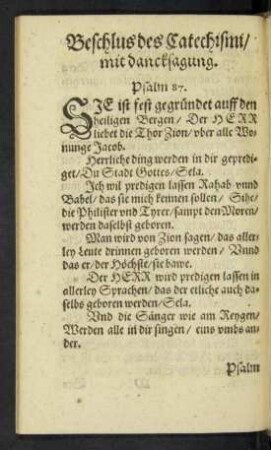 Beschlus des Catechismi/
mit dancksagung.
Psalm 87.
SJE ist fest gegründet auff den
heiligen Bergen/ Der HERR
liebet die Thor Zion/ vber alle Wo-
nunge Jacob.
Herrliche ding werden in dir gepredi-
get/ Du Stadt Gottes/ Sela.
Jch wil predigen lassen Rahab vnnd
Babel/ das sie mich kennen sollen/ Sihe/
die Philister vnd Tyrer/ sampt den Moren/
werden daselbst geboren.
Man wird von Zion sagen/ das aller-
ley Leute drinnen geboren werden/ Vnnd
das er/ der Höchste/ sie bawe.
Der HERR wird predigen lassen in
allerley Sprachen/ das der etliche auch da-
selbs geboren werden/ Sela.
Vnd die Sänger wie am Reygen/
Werden alle in dir singen/ eins vmbs an-
der.
Psalm